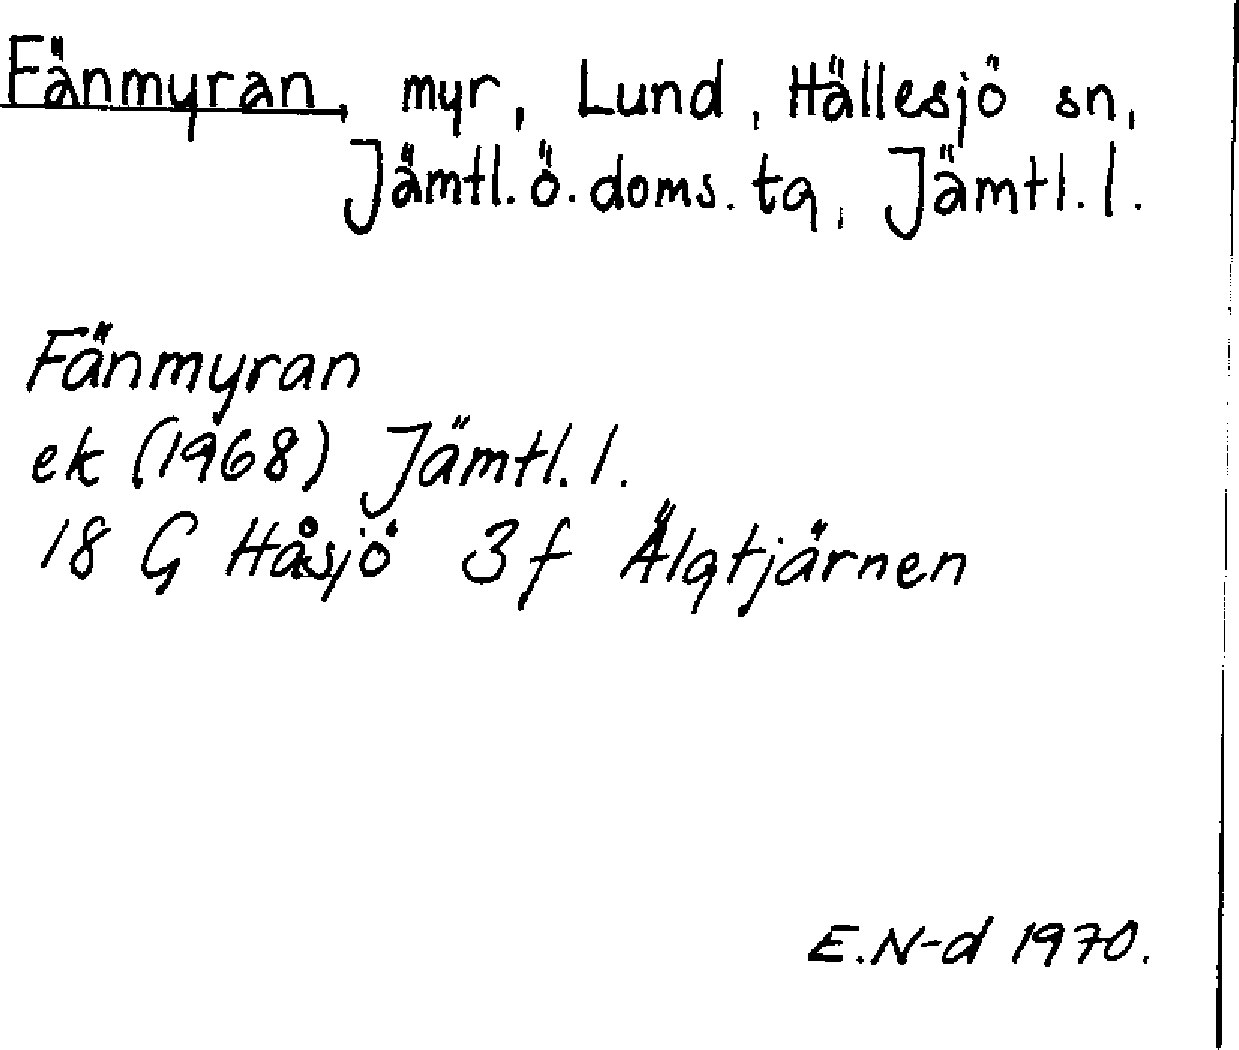 Fänmyran, myr, Lund, Hällesjö sn,
Jämtl. ö. doms. tg, Jämtl. l.
Fänmyran
ek (1968) Jämtl. l.
18 G Håsjö 3 f Älgtjärnen
E.N-d 1970.